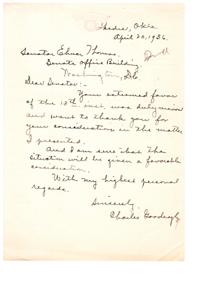 Okla
April 20, 1936.
Senator Elmer Thomas,
Senate Office Building,
Washington, D.C.
Dear Senator:-
Your esteemed favor
of the 18th inst. was duly
and want to thank you for
your consideration in the matter
I presented.
And I am sure that the
situation will be given a favorable
consideration.
With my highest personal
regards.
Sincerely,
Charles